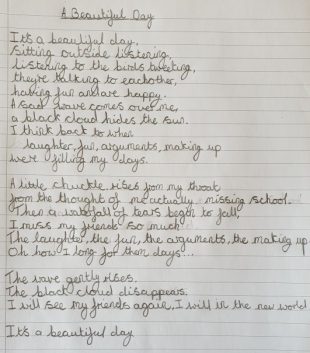 A Beautiful Day
It's a beautiful day,
Sitting outside listening,
listening to the birds tweeting,
they're talking to eachother,
having fun and are happy.
A sad wave comes over me,
a black cloud hides the sun.
I think back to when
laughter, fun, arguments, making up
were filling my days.
A little chuckle rises from my throat
from the thought of me actually missing school.
Then a waterfall of tears begin to fall,
I miss my friends so much
The laughter, the fun, the arguments, the making up
Oh how I long for them days...
The wave gently rises.
The black cloud disappears.
I will see my friends again, I will in the new world
It's a beautiful day